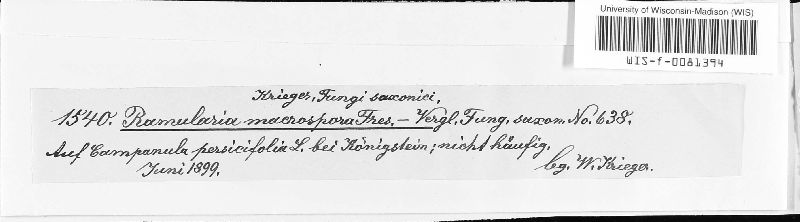 University of Wisconsin-Madison (WIS)
WIS-f-0081394
Krieger, Fungi saxonici,
1540. Ramularia macrospora Fres. – Vergl. Fung. saxon. No. 638.
Auf Campanula persicifolia L. bei Königstein; nicht häufig.
Juni 1899. lg. W. Krieger.